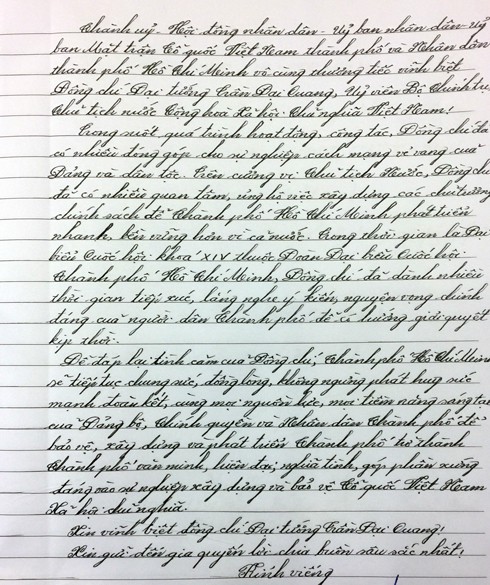 Thành uỷ - Hội đồng nhân dân - Uỷ ban nhân dân - Uỷ
ban Mặt trận Tổ quốc Việt Nam thành phố và Nhân dân
thành phố Hồ Chí Minh vô cùng thương tiếc vĩnh biệt
Đồng chí Đại tướng Trần Đại Quang, Uỷ viên Bộ Chính trị,
Chủ tịch nước Cộng hoà Xã hội Chủ nghĩa Việt Nam!
Trong suốt quá trình hoạt động, công tác, Đồng chí đã
có nhiều đóng góp cho sự nghiệp cách mạng vẻ vang của
Đảng và dân tộc. Trên cương vị Chủ tịch Nước, Đồng chí
đã có nhiều quan tâm, ủng hộ việc xây dựng các chủ trương,
chính sách để Thành phố Hồ Chí Minh phát triển
nhanh, bền vững hơn vì cả nước. Trong thời gian là Đại
biểu Quốc hội khoá XIV thuộc Đoàn Đại biểu Quốc hội
Thành phố Hồ Chí Minh, Đồng chí đã dành nhiều
thời gian tiếp xúc, lắng nghe ý kiến, nguyện vọng chính
đáng của người dân Thành phố để có hướng giải quyết
kịp thời.
Để đáp lại tình cảm của Đồng chí, Thành phố Hồ Chí Minh
sẽ tiếp tục chung sức, đồng lòng, không ngừng phát huy sức
mạnh đoàn kết, cùng mọi nguồn lực, mọi tiềm năng sáng tạo
của Đảng bộ, Chính quyền và Nhân dân Thành phố để
bảo vệ, xây dựng và phát triển Thành phố trở thành
Thành phố văn minh, hiện đại, nghĩa tình, góp phần xứng
đáng vào sự nghiệp xây dựng và bảo vệ Tổ quốc Việt Nam
Xã hội chủ nghĩa.
Xin vĩnh biệt đồng chí Đại tướng Trần Đại Quang!
Xin gửi đến gia quyến lời chia buồn sâu sắc nhất!
Kính viếng